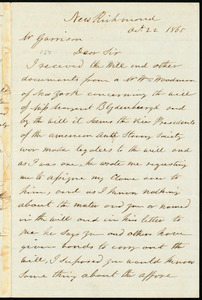 New Richmond
Oct. 22 1865
Mr Garrison
Dear Sir
I received the Will and other
documents from a Mr W. Woodman
of New York concerning the will
of Miss Sargent Blydenburgh and
by the will it seems the Vice Presidents
of the American Anti Slavery Society
were made legaters to the will and
as I was one he wrote me requesting
me to assign my claim over to
him, and as I know nothing
about the mater and you or named
in the will and in his letter to
me he says you and others have
given bonds to carry out the
will, I suposed you would know
Some thing about the affare